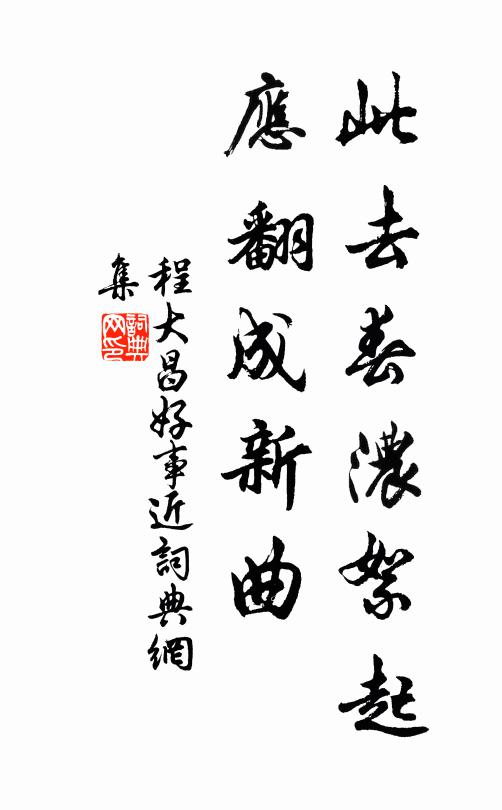 此去春濃絮起
應翻成新曲
程大昌好事近詞典網
集
詞典网印